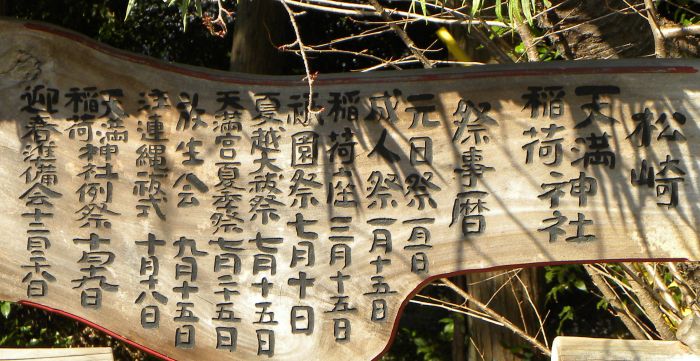 松崎
天満神社
稲荷神社
祭事暦
元日祭 一月一日
成人祭 一月十五日
稲荷座 三月十五日
祇園祭 七月十日
夏越大祓祭 七月十五日
天満宮夏季祭 七月二十五日
放生会 九月十五日
注連縄祓式 十月十八日
天満神社
稲荷神社例祭
迎春準備会 十二月二十八日